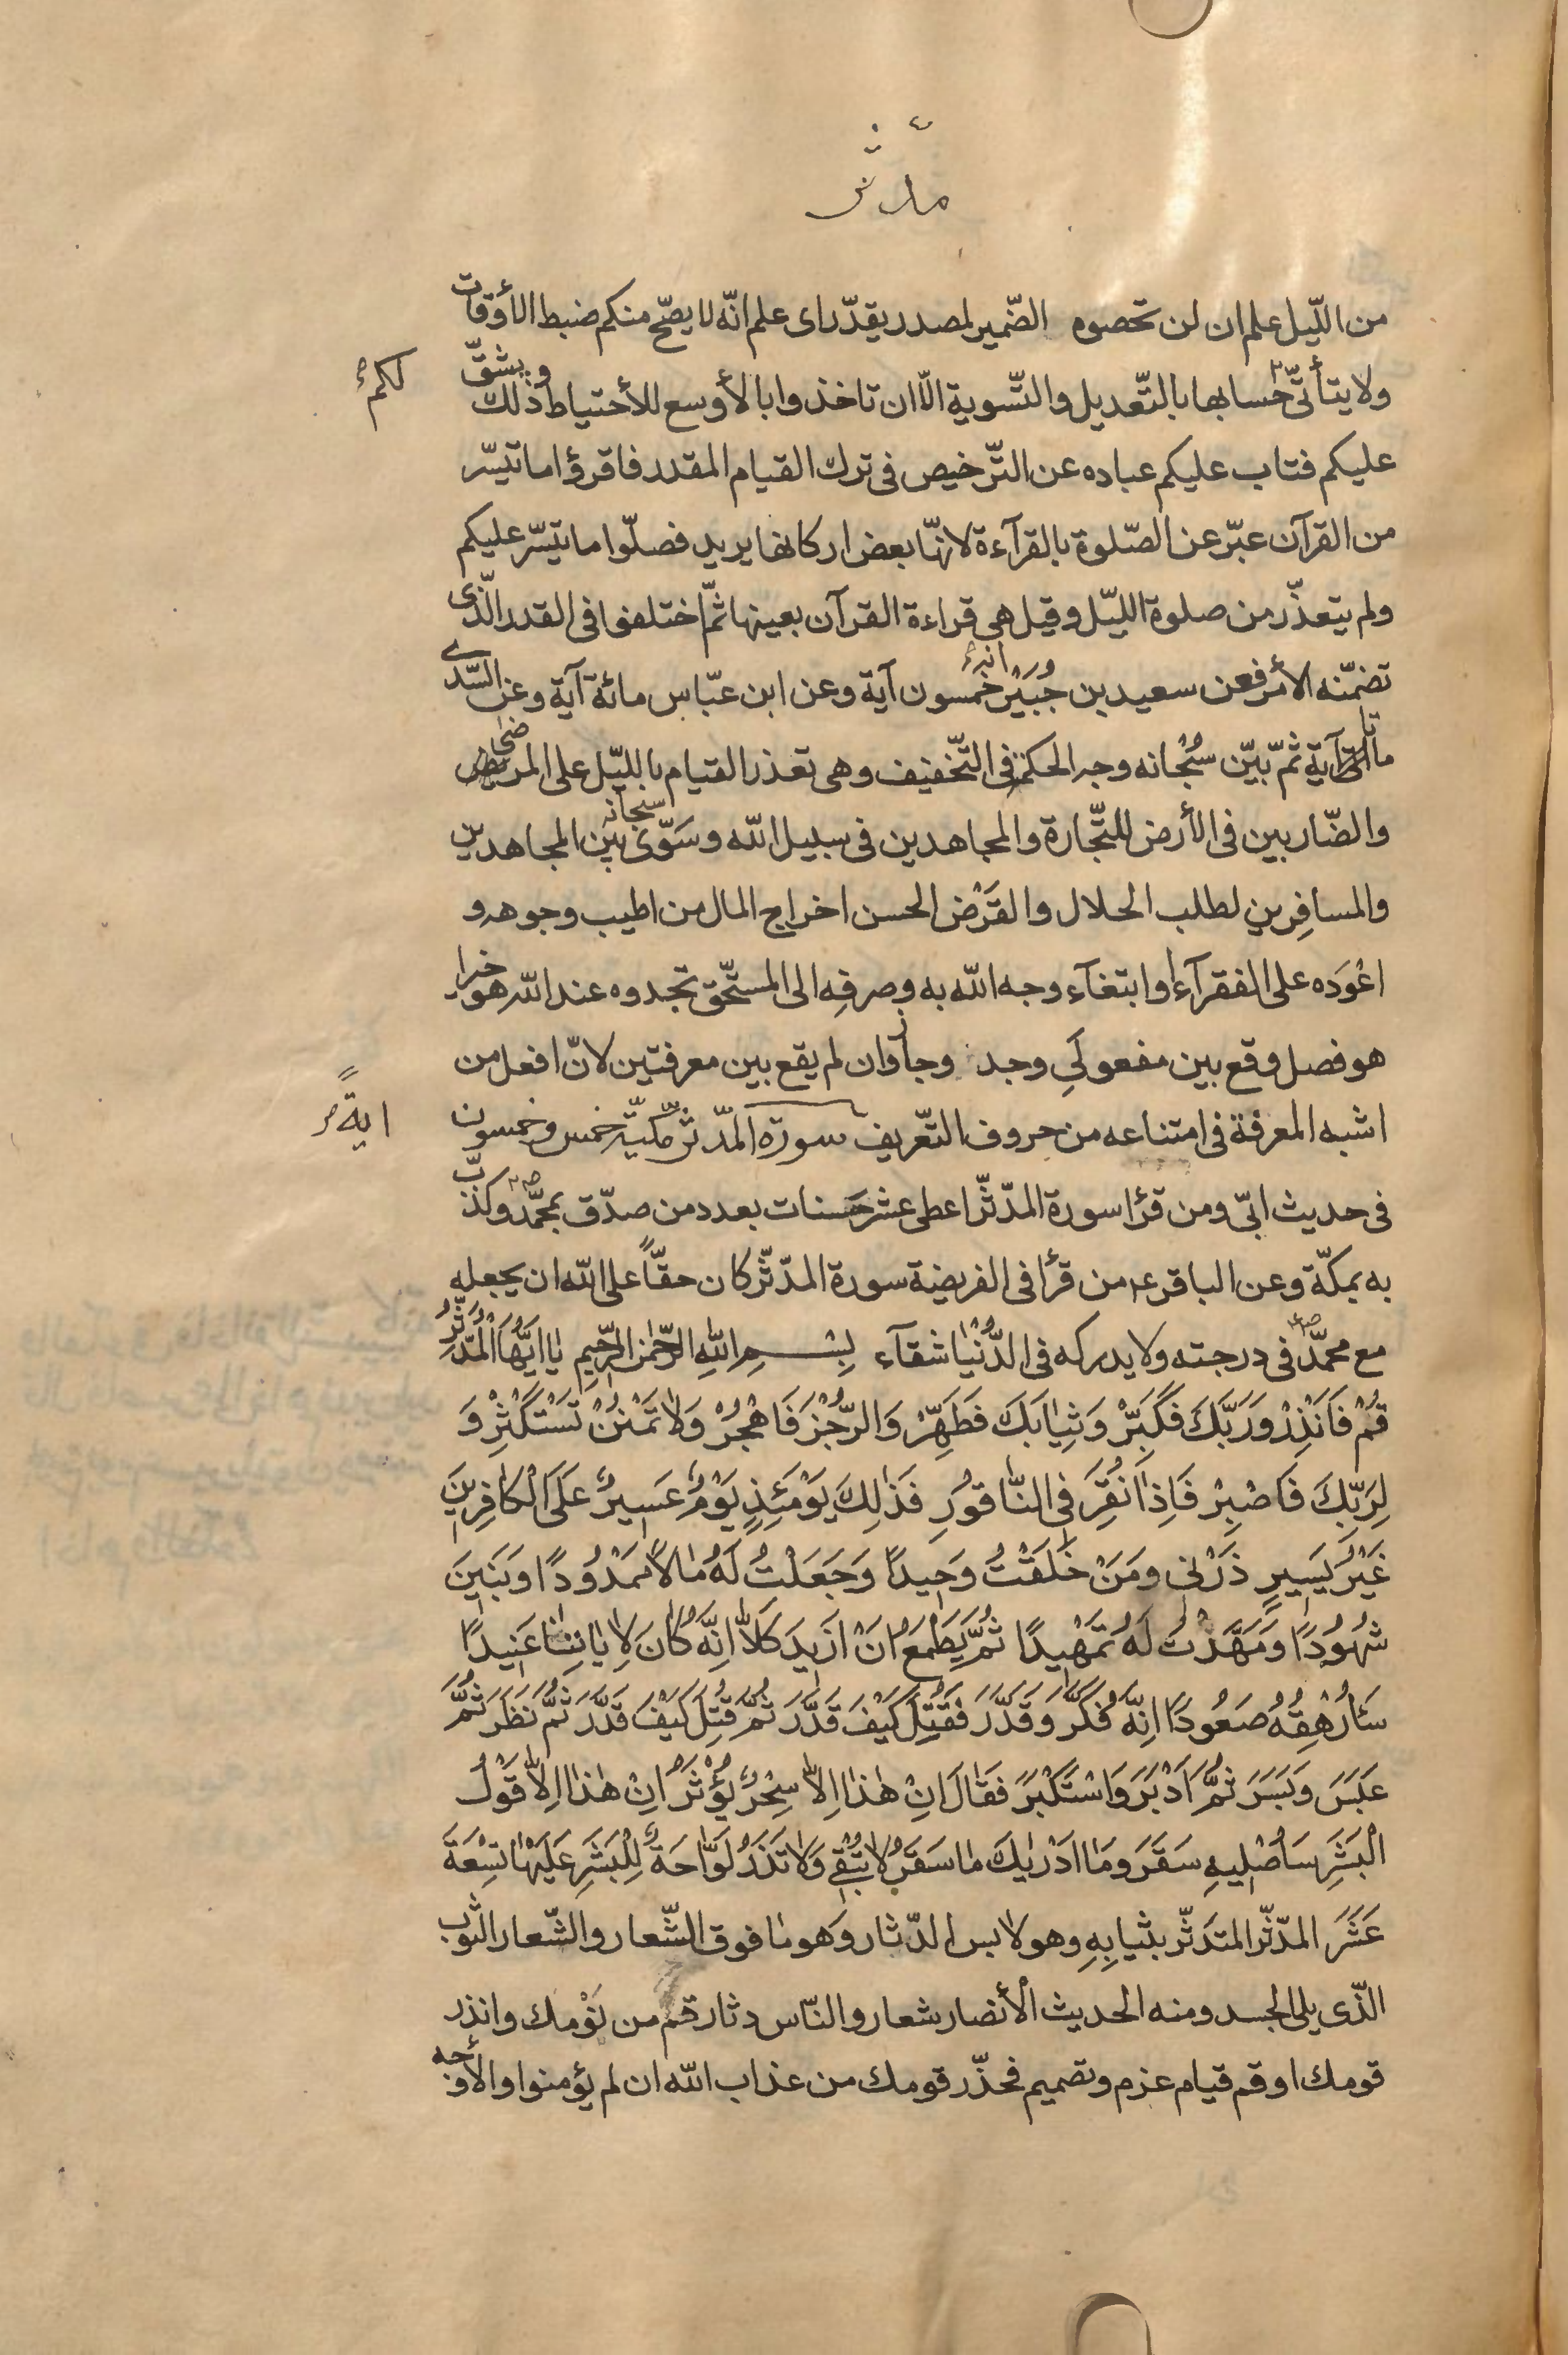 مدّثر
من اللّيل علم ان لن تحصوه الضّمير لمصدر يقدّر اى علم انّه لا يصّح منكم ضبط الأوقات
ولا يتأتّى حسابها بالتّعديل والتّسوية الّا ان تاخذوا بالأوسع للأحتياط وذلك يشقّ
لكم
عليكم فتاب عليكم عباده عن التّرخيص فى ترك القيام المقدر فاقرؤا ما تيسّر
من القرآن عبّر عن الصّلوة بالقرآءة لانهّا بعض اركانها يريد فصلّوا ما تيسّر عليكم
ولم يتعذّر من صلوة اللّيل وقيل هى قراءة القرآن بعينها ثمّ اختلفوا فى القدر الّذى
تضمّنه الأمر فعن سعيد بن جُبَيْر خمسون آية وعن ابن عبّاس مائة آية وعن السّدى
مائتا آية ثمّ بيّن سُبْحانه وجه الحكمة فى التّخفيف وهى تعذر القيام بالليّل على المرضى
والضّاربين فى الأرض للتّجارة والمجاهدين فى سبيل الله وسَوّى سبحانه بين المجاهدين
والمسافِرين لطلب الحلال والقَرْض الحسن اخراج المال من اطيب وجوهه و
اعْوَده على الفقرآء وابتغآء وجه الله به وصرفِه الى المستحّق تجدوه عند الله هو خيرا
هو فصل وقع بين مفعولَي وجد وجاز وان لم يقع بين معرفتين لانّ افعل من
اشبه المعرفة فى امتناعه من حروف التّعريف سورة المدّثر مكيّة خمس وخمسون
ايةً
فى حديث ابّى ومن قرأ سورة المدّثّر اعطى عشر حسنات بعدد من صدّق بمحمّد ص وكذّب
به بمكّة وعن الباقر ع من قرأ فى الفريضة سورة المدّثّر كان حقّاً على الله ان يجعله
مع محمّد ص فى درجته ولا يدركه فى الدُّنْيٰا شقآء بِسْــمِ اللهِ الرَّحْمٰنِ الرَّحِيمِ يٰا اَيُّهَا الْمُدَّثِّرُ
قُمْ فَاَنْذِرْ وَرَبَّكَ فَكَبِّرْ وَثِيٰابَكَ فَطَهِّرْ وَالرُّجْزَ فَاهْجُرْ وَلاٰ تَمْنُنْ تَسْتَكْثِرُ وَ
لِرَبِّكَ فَاصْبِرْ فَاِذٰا نُقِرَ فِى النّٰاقُورِ فَذٰلِكَ يَوْمَئِذٍ يَوْمٌ عَسِيرٌ عَلَى الْكٰافِرِينَ
غَيْرُ يَسِيرٍ ذَرْنى وَمَنْ خَلَقْتُ وَحِيداً وَجَعَلْتُ لَهُ مٰالاً مَمْدُوداً وَبَنِينَ
شُهُوداً وَمَهَّدْتُ لَهُ تَمْهِيداً ثُمَّ يَطْمَعُ اَنْ اَزِيدَ كَلاّٰ اِنَّهُ كٰانَ لِاٰيٰاتِنٰا عَنِيداً
سَاُرْهِقُهُ صَعُوداً اِنَّهُ فَكَّرَ وَقَدَّرَ فَقُتِلَ كَيْفَ قَدَّرَ ثُمَّ قُتِلَ كَيْفَ قَدَّرَ ثُمَّ نَظَرَ ثُمَّ
عَبَسَ وَبَسَرَ ثُمَّ اَدْبَرَ وَاسْتَكْبَرَ فَقٰالَ اِنْ هٰذٰا اِلاّٰ سِحْرٌ يُؤْثَرُ اِنْ هٰذٰا اِلاّٰ قَوْلُ
الْبَشَرِ سَاُصْلِيهِ سَقَرَ وَمٰا اَدْرٰيكَ مٰا سَقَرُ لاٰ تُبْقِى وَلاٰ تَذَرُ لَوّٰاحَةٌ لِلْبَشَرِ عَلَيْهٰا تِسْعَةَ
عَشَرَ المدّثّر المتَدثّر بثيابِهِ وهو لابس الدّثار وهو ما فوق الشّعار والشّعار الثّوب
الّذى يلى الجسد ومنه الحديث الأنصار شعار والنّاس دثار قم من نَوْمك وانذر
قومك او قم قيام عزم وتصميم فحذّر قومك من عذاب الله ان لم يؤمنوا والأوجه